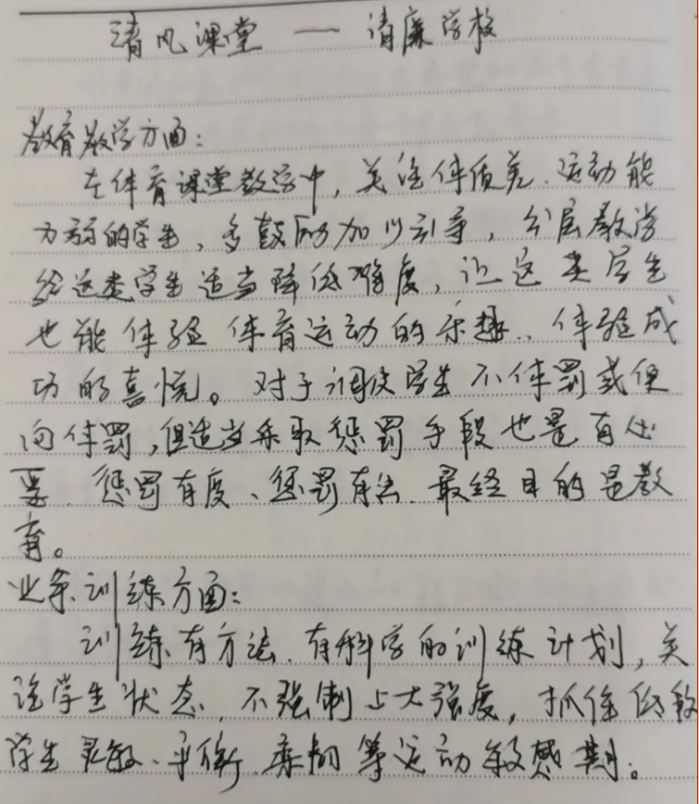 清风课堂 — 清廉学校
教育教学方面：
在体育课堂教学中，关注体质差、运动能
力弱的学生，多鼓励加以引导，分层教学
给这类学生适当降低难度，让这类学生
也能体验体育运动的乐趣、体验成
功的喜悦。对于调皮学生不体罚或便
向体罚，但适当采取惩罚手段也是有必
要、惩罚有度、惩罚有法、最终目的是教
育。
业余训练方面：
训练有方法、有科学的训练计划，关
注学生状态、不强制上大强度，抓住低段
学生灵敏、平衡、柔韧等运动敏感期。